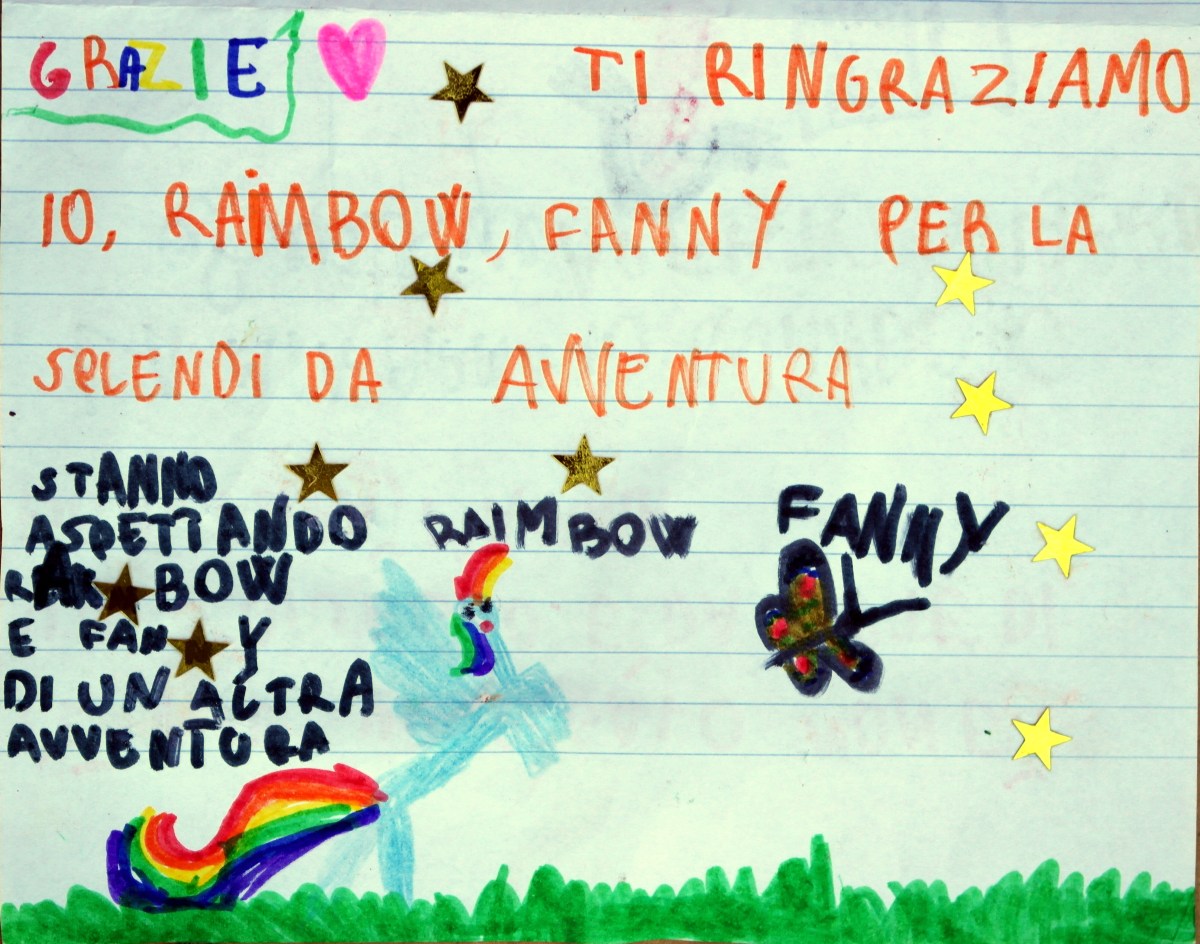 GRAZIE
TI RINGRAZIAMO
IO, RAIMBOW, FANNY PER LA
SPLENDIDA AVVENTURA
STANNO
ASPETTANDO
BOW
E FAN Y
DI UN ALTRA
AVVENTURA
RAIMBOW
FANNY